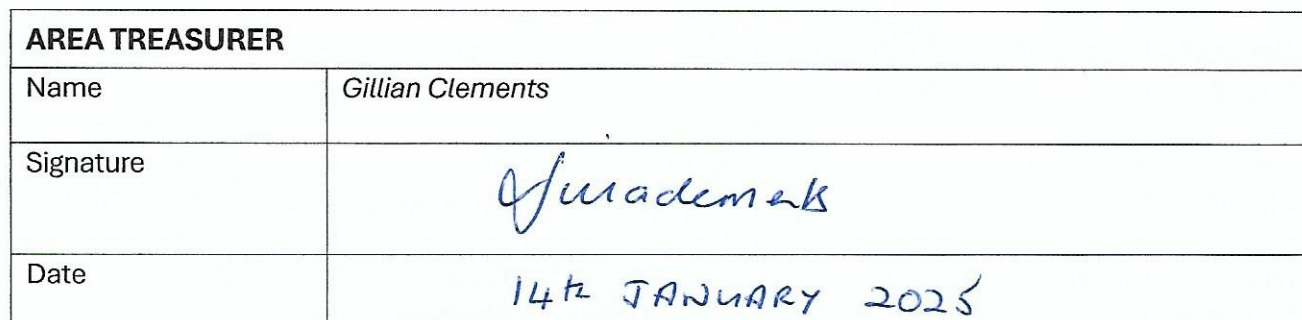 AREA TREASURER
Name Gillian Clements
Signature
Date 14th JANUARY 2025